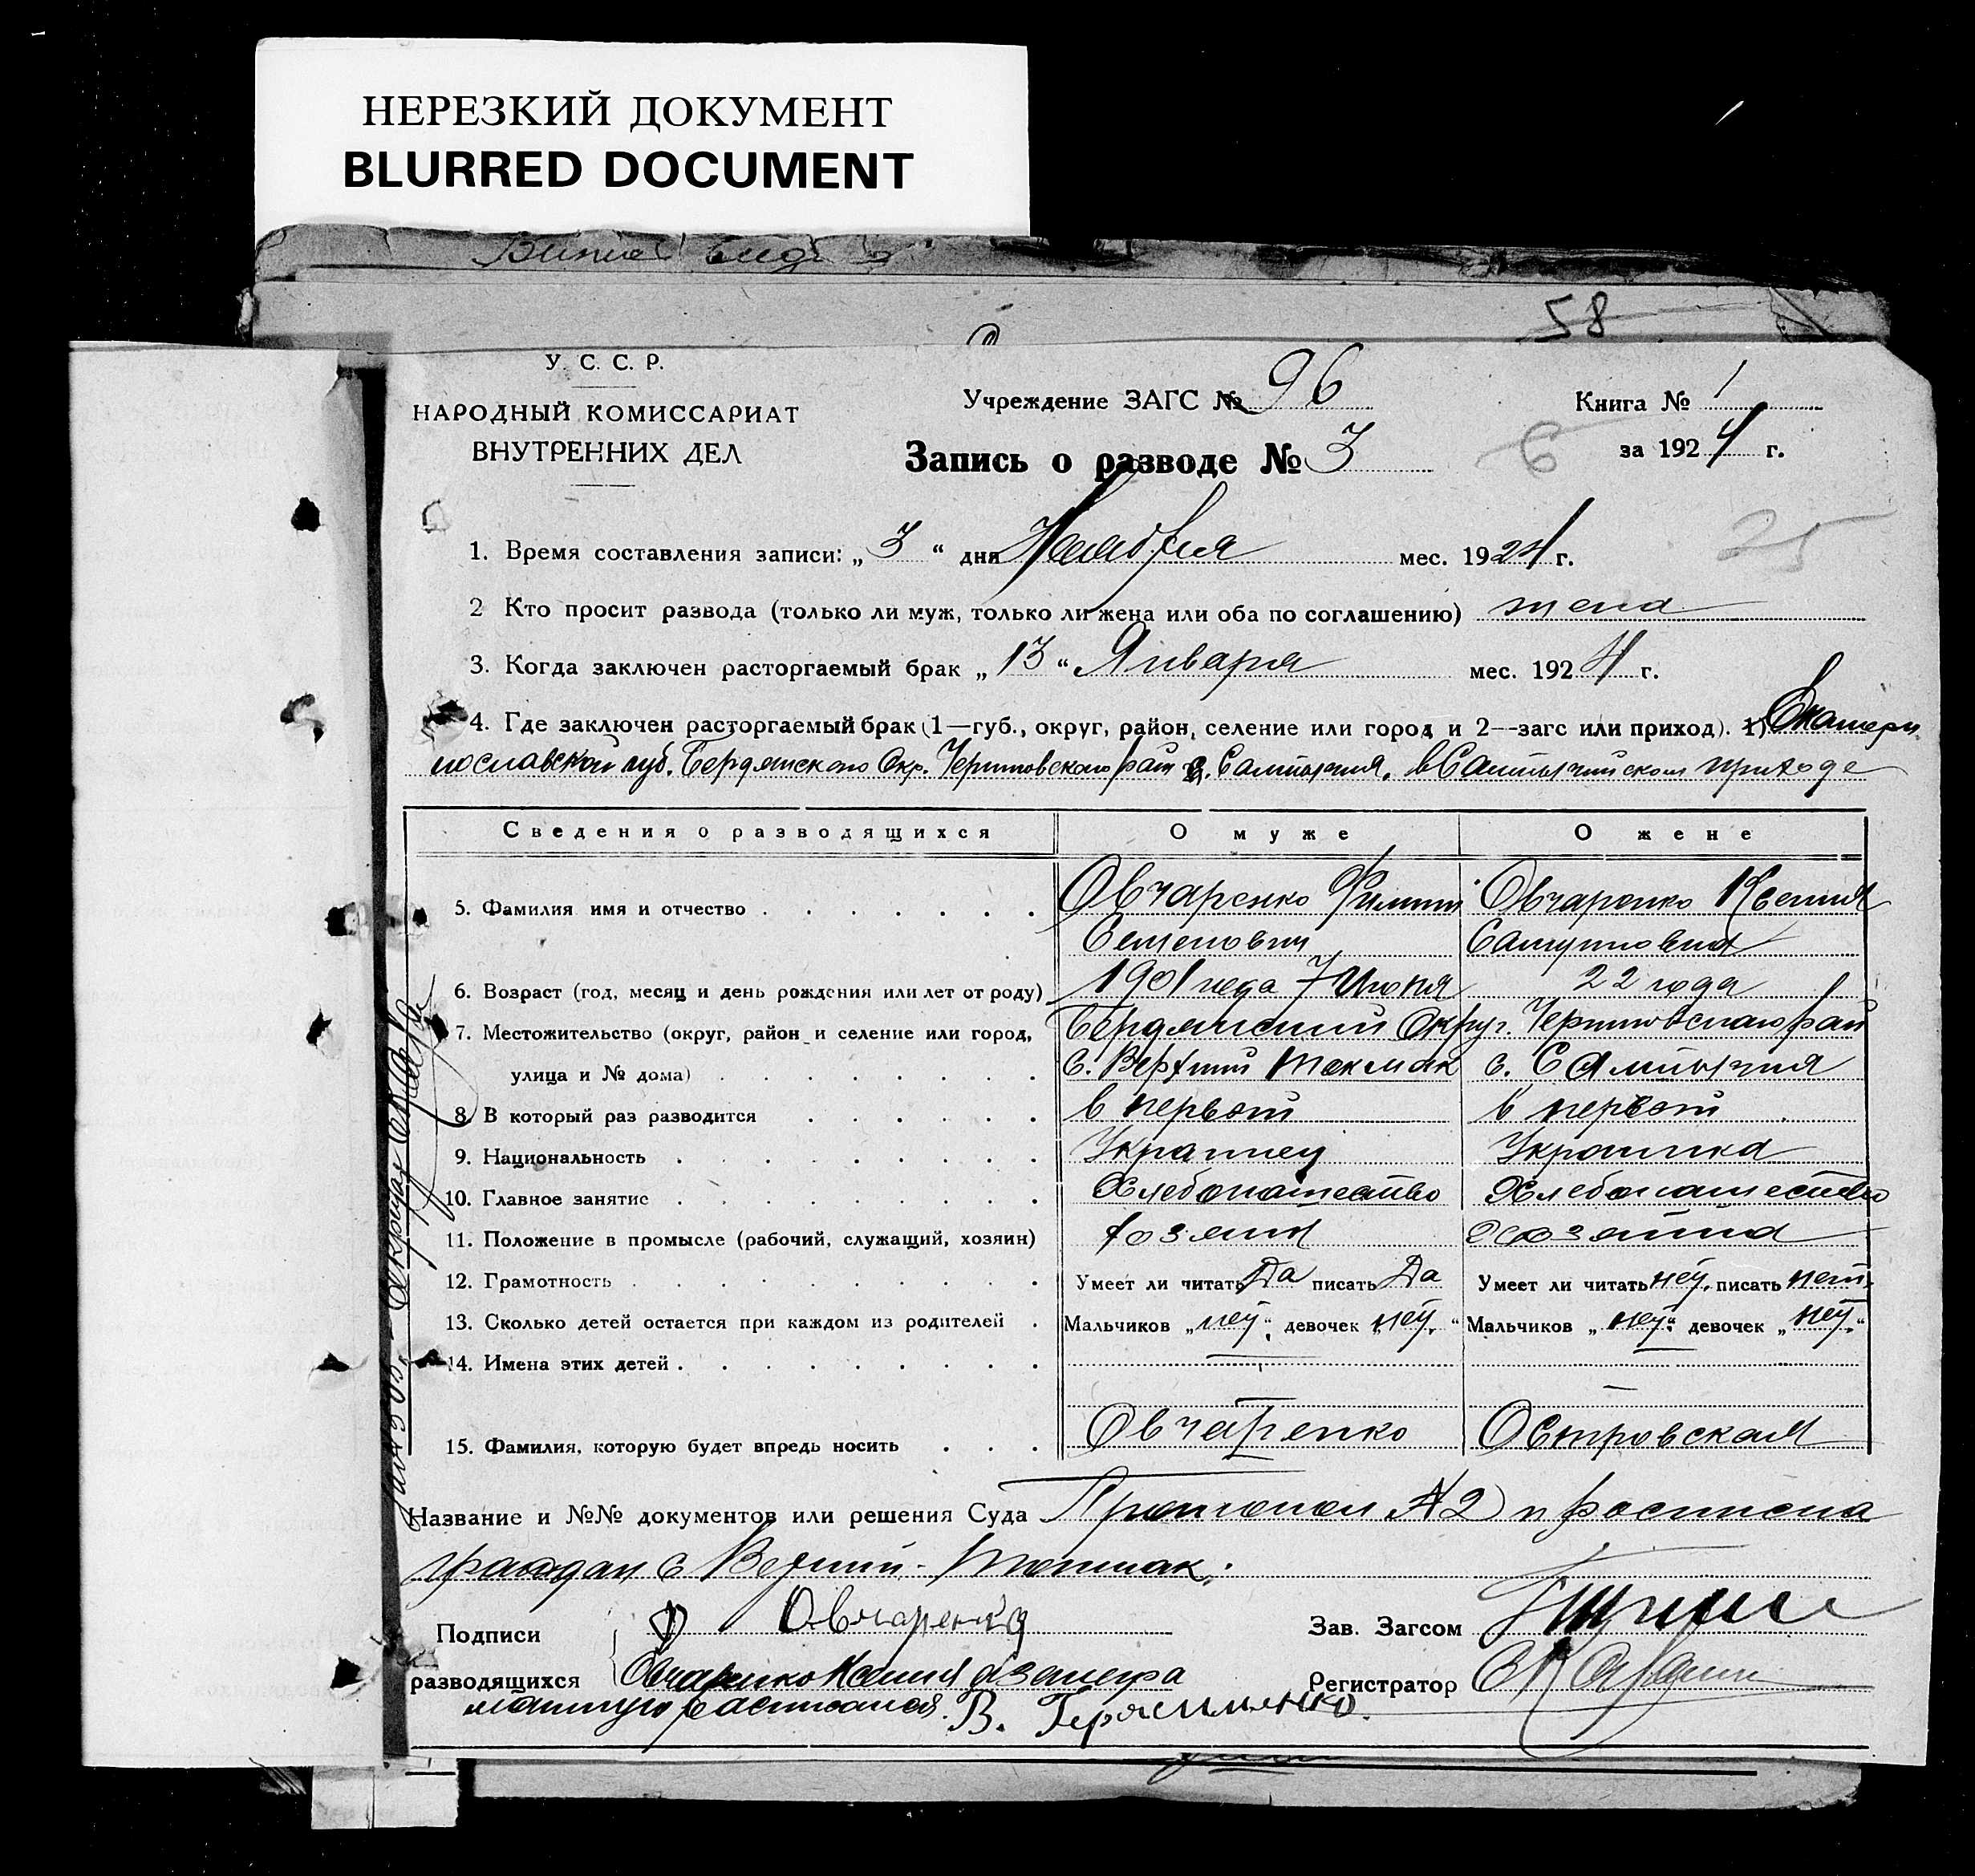 НЕРЕЗКИЙ ДОКУМЕНТ
BLURRED DOCUMENT
58
У. С. С. Р.
НАРОДНЫЙ КОМИССАРИАТ
ВНУТРЕННИХ ДЕЛ
Учреждение ЗАГС № 96
Книга № 1
Запись о разводе № 3
6
за 1924 г.
25
1. Время составления записи: „ 3 “ дня Ноября мес. 1924 г.
2 Кто просит развода (только ли муж, только ли жена или оба по соглашению) жена
3. Когда заключен расторгаемый брак „ 13 “ Января мес. 1924 г.
4. Где заключен расторгаемый брак (1—губ., округ, район, селение или город и 2—загс или приход). 1) Екатери
нославской губ. Бердянского Окр. Черниговского рай с. Салтычия. в Салтычийском приходе
Сведения о разводящихся О муже О жене
5. Фамилия имя и отчество Овчаренко Филипп Овчаренко Ксения
Семенович
6. Возраст (год, месяц и день рождения или лет от роду) 1901 года 7 Июня 22 года
7. Местожительство (округ, район и селение или город, Бердянский Округ. Черниговского рай
улица и № дома) с. Верхний Токмак с. Салтычия
8. В который раз разводится в первой в первой
9. Национальность Украинец Украинка
10. Главное занятие Хлебопашество Хлебопашество
11. Положение в промысле (рабочий, служащий, хозяин) хозяин хозяйка
12. Грамотность Умеет ли читать Да писать Да Умеет ли читать нет. писать нет.
13. Сколько детей остается при каждом из родителей Мальчиков „ нет “, девочек „ нет. “ Мальчиков „ нет “. девочек „ нет. “
14. Имена этих детей
15. Фамилия, которую будет впредь носить Овчаренко Островская
Название и №№ документов или решения Суда Протокол №2 и росписка
граждан с Верхний-Токмак.
Подписи Ф Овчаренко Зав. Загсом
разводящихся Овчаренко Ксения а за неграмотную расписался В. Герасименко. Регистратор